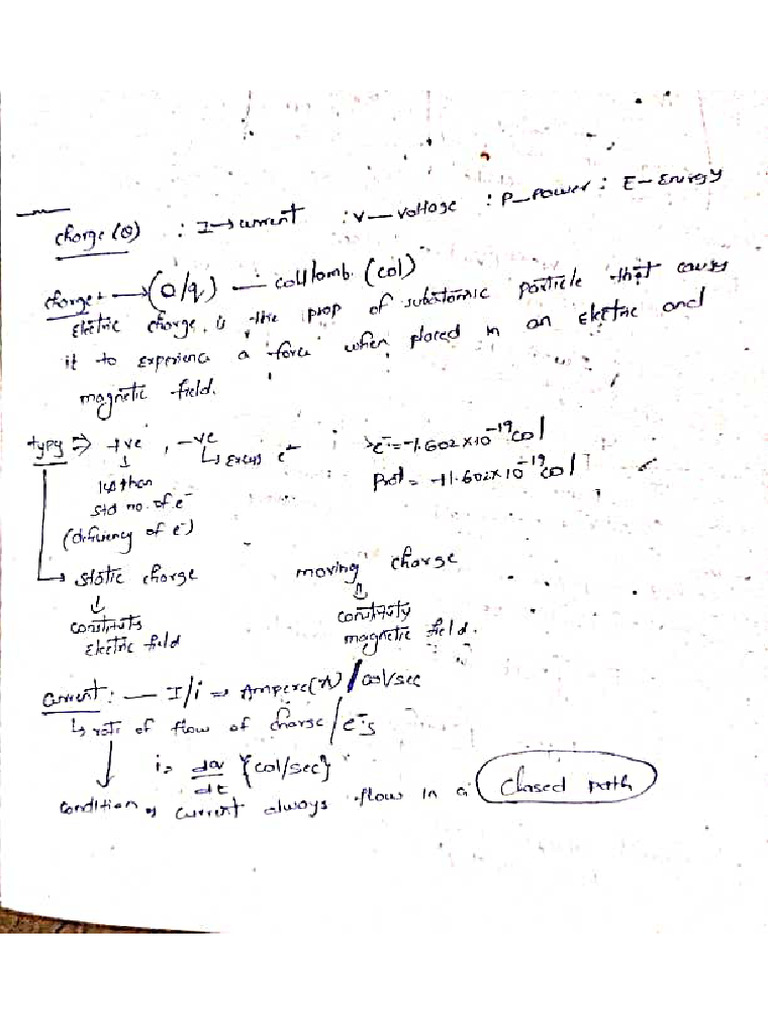 Charge (Q) : I → current : V — voltage : P — Power : E — Energy
Charge → (Q/q) — coulomb. (col)
Electric charge, is the prop of subatomic particle that causes
it to experience a force when placed in an electric and
magnetic field.
types ⇒ +ve , -ve e⁻ = -1.602×10⁻¹⁹ col
↓ ↳ excess e⁻ Prot = +1.602×10⁻¹⁹ col
less than
std no. of e⁻
(deficiency of e⁻)
↳ static charge moving charge
⇓ ⇓
constitutes constitutes
electric field magnetic field.
Current : — I/i ⇒ Ampere(A) / col/sec
↳ rate of flow of charge / e⁻s
i = dq/dt {col/sec}
condition ⇒ current always flow in a closed path